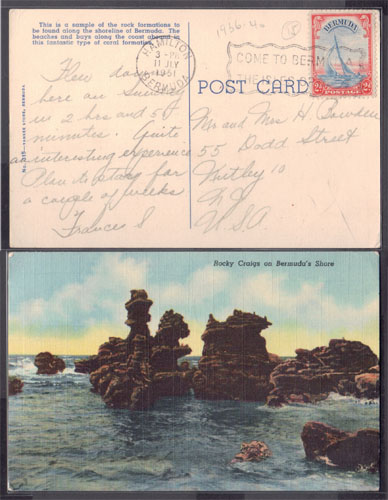 This is a sample of the rock formations to
be found along the shoreline of Bermuda. The
beaches and bays along the coast abound in
this fantastic type of coral formation.
1936-40
18
HAMILTON
3-PM
11 JLY
1951
BERMUDA
COME TO BERM
THE ISLES OF
BERMUDA
2½d POSTAGE 2½d
POST CARD
Flew down
here on Sunday
in 2 hrs and 50
minutes. Quite
an interesting experience
Plan to stay for
a couple of weeks
Frances S
Mr and Mrs H.
55 Dodd Street
Nutley 10
N.J.
U.S.A.
BERMUDA
Rocky Craigs on Bermuda's Shore